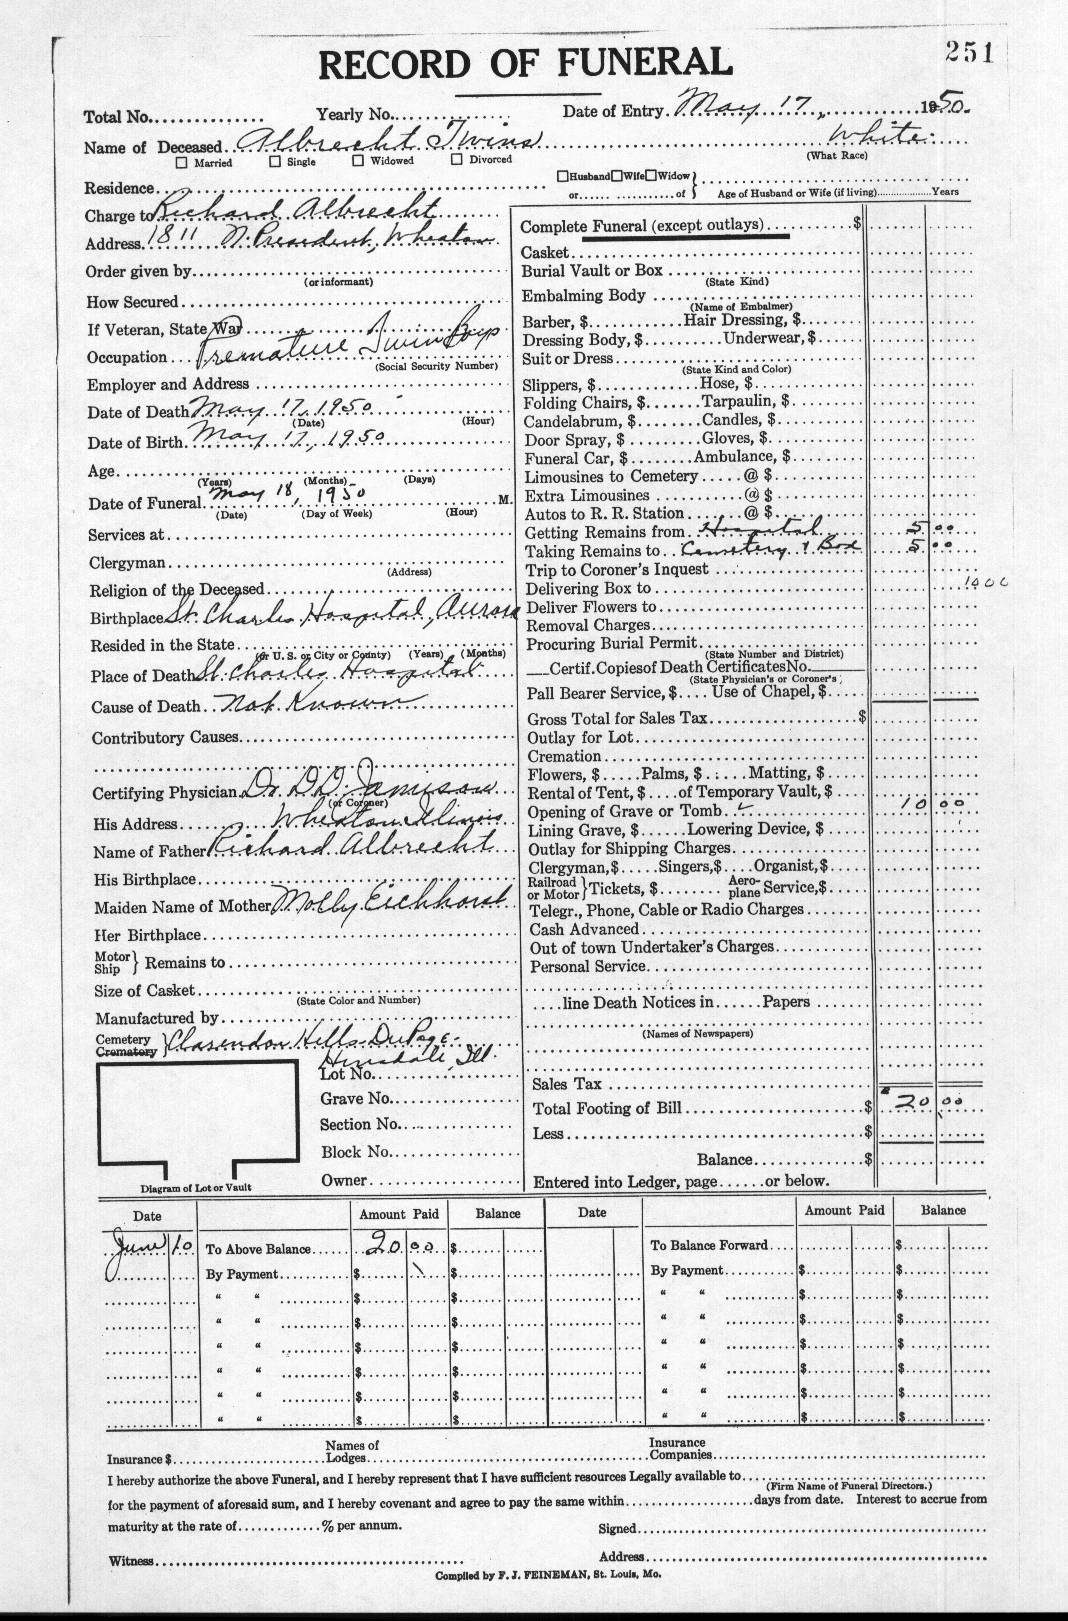 251
RECORD OF FUNERAL
Total No............... Yearly No............... Date of Entry. May 17, 1950.
Name of Deceased. Albrecht Twins White.
☐ Married ☐ Single ☐ Widowed ☐ Divorced (What Race)
Residence ☐Husband☐Wife☐Widow
or...... ............of Age of Husband or Wife (if living)..................Years
Charge to Richard Albrecht
Address. 1811 N. President, Wheaton
Order given by
(or informant)
How Secured
If Veteran, State War
Occupation... Premature Twin Boys
(Social Security Number)
Employer and Address
Date of Death May 17, 1950
(Date) (Hour)
Date of Birth. May 17, 1950
Age
(Years) (Months) (Days)
Date of Funeral. May 18, 1950 M.
(Date) (Day of Week) (Hour)
Services at
Clergyman
(Address)
Religion of the Deceased
Birthplace St. Charles Hospital, Aurora
Resided in the State
(or U. S. or City or County) (Years) (Months)
Place of Death St. Charles Hospital
Cause of Death.. Not Known
Contributory Causes
Certifying Physician. Dr. D.D. Jamieson
(or Coroner)
His Address Wheaton Illinois
Name of Father Richard Albrecht
His Birthplace
Maiden Name of Mother Molly Eichhorst
Her Birthplace
Motor
Ship } Remains to
Size of Casket
(State Color and Number)
Manufactured by
Cemetery
Crematory } Clarendon Hills DuPage -
Hinsdale, Ill.
Lot No.
Grave No.
Section No.
Block No.
Owner
Diagram of Lot or Vault
Complete Funeral (except outlays) $
Casket
Burial Vault or Box
(State Kind)
Embalming Body
(Name of Embalmer)
Barber, $............Hair Dressing, $
Dressing Body, $..........Underwear, $
Suit or Dress
(State Kind and Color)
Slippers, $.............Hose, $
Folding Chairs, $.......Tarpaulin, $
Candelabrum, $........Candles, $
Door Spray, $..........Gloves, $
Funeral Car, $.......Ambulance, $
Limousines to Cemetery.....@ $
Extra Limousines ...........@ $
Autos to R. R. Station.......@ $
Getting Remains from.. Hospital 5 00
Taking Remains to.. Cemetery & Box 5 00
Trip to Coroner's Inquest
Delivering Box to 1000
Deliver Flowers to
Removal Charges
Procuring Burial Permit
(State Number and District)
Certif. Copies of Death Certificates No.
(State Physician's or Coroner's
Pall Bearer Service, $.... Use of Chapel, $
Gross Total for Sales Tax $
Outlay for Lot
Cremation
Flowers, $.....Palms, $.....Matting, $
Rental of Tent, $....of Temporary Vault, $
Opening of Grave or Tomb.. ✓ 10 00
Lining Grave, $......Lowering Device, $
Outlay for Shipping Charges
Clergyman,$.....Singers,$....Organist,$
Railroad
or Motor } Tickets, $......... Aero-
plane Service,$
Telegr., Phone, Cable or Radio Charges
Cash Advanced
Out of town Undertaker's Charges
Personal Service
....line Death Notices in......Papers
(Names of Newspapers)
Sales Tax
Total Footing of Bill $ 20 00
Less $
Balance $
Entered into Ledger, page......or below.
Date Amount Paid Balance Date Amount Paid Balance
June 10 To Above Balance...... 20 00 $ To Balance Forward $
By Payment $ $ By Payment $ $
“ “ $ $ “ “ $ $
“ “ $ $ “ “ $ $
“ “ $ $ “ “ $ $
“ “ $ $ “ “ $ $
“ “ $ $ “ “ $ $
“ “ $ $ “ “ $ $
Insurance $ Names of
Lodges Insurance
Companies
I hereby authorize the above Funeral, and I hereby represent that I have sufficient resources Legally available to
(Firm Name of Funeral Directors.)
for the payment of aforesaid sum, and I hereby covenant and agree to pay the same within....................days from date. Interest to accrue from
maturity at the rate of.............% per annum. Signed
Witness Address
Compiled by F. J. FEINEMAN, St. Louis, Mo.